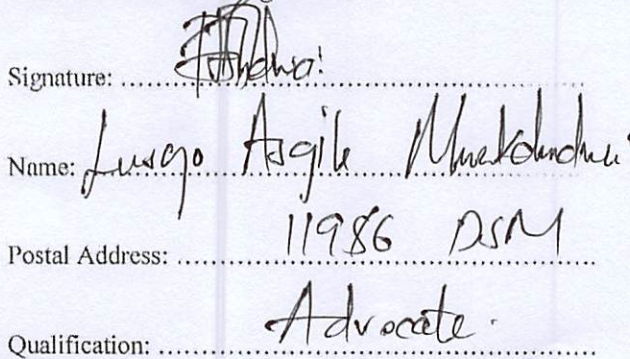 Signature:
Name: Lusajo Asgile
Postal Address: 11986 DSM
Qualification: Advocate.